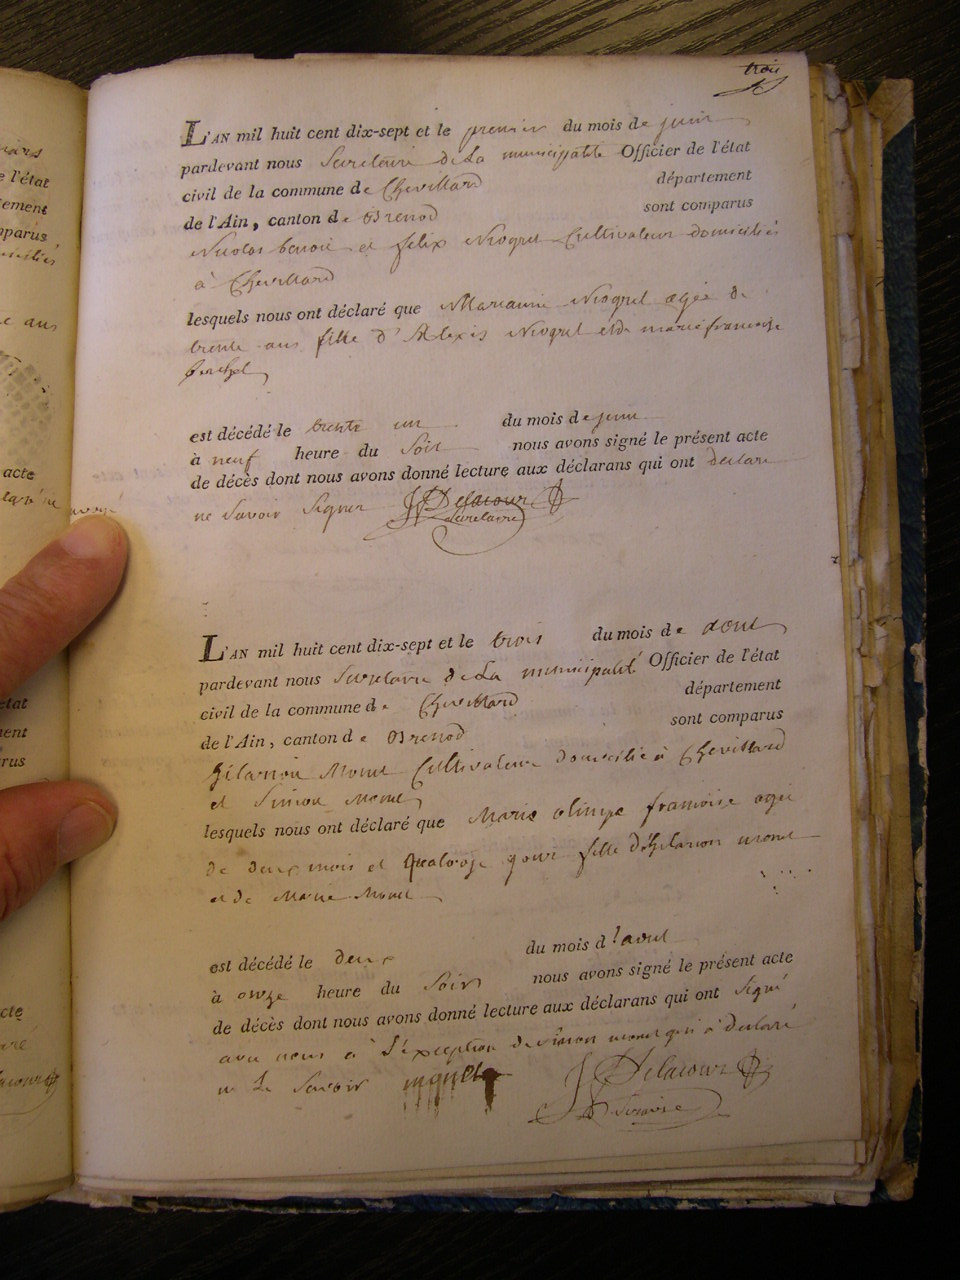 trois
L'AN mil huit cent dix-sept et le premier du mois de juin
pardevant nous Secretaire de La municipalité Officier de l'état
civil de la commune de Chevillard département
de l'Ain, canton de Brenod sont comparus
Nicolas benoit et felix Niogret Cultivateur domiciliés
à Chevillard
lesquels nous ont déclaré que Marianne Niogret agée de
trente ans fille d'Alexis Niogret et de marie françoise
est décédé le trente un du mois de juin
à neuf heure du Soir nous avons signé le présent acte
de décès dont nous avons donné lecture aux déclarans qui ont declaré
ne Savoir Signer Delacour
Secretaire
L'AN mil huit cent dix-sept et le trois du mois de aout
pardevant nous Secretaire de La municipalité Officier de l'état
civil de la commune de Chevillard département
de l'Ain, canton de Brenod sont comparus
hilarion Monet Cultivateur domicilié à Chevillard
et Simon Monet
lesquels nous ont déclaré que Marie olimpe francoise agée
de deux mois et Quatorze jour fille d'hilarion monet
et de Marie Monet
est décédé le deux du mois d'aout
à onze heure du Soir nous avons signé le présent acte
de décès dont nous avons donné lecture aux déclarans qui ont Signé
avec nous à L'exception de Simon monet qui à declaré
ne Le Savoir Delacour